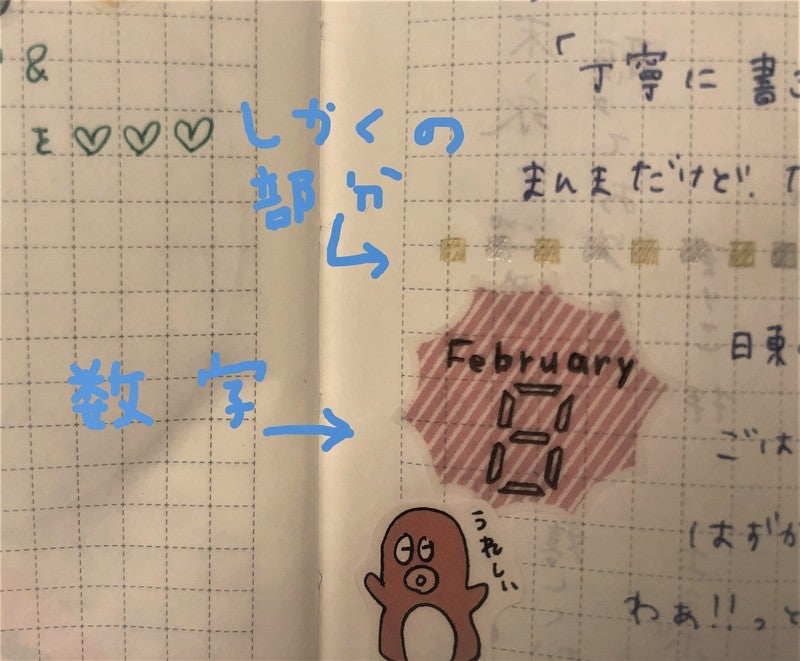 &
を♡♡♡
しかくの
部分
↳
数字→
「丁寧に書
まんまだけど、
February
8
うれしい
日東
ごは
はずか
わぁ!!っと